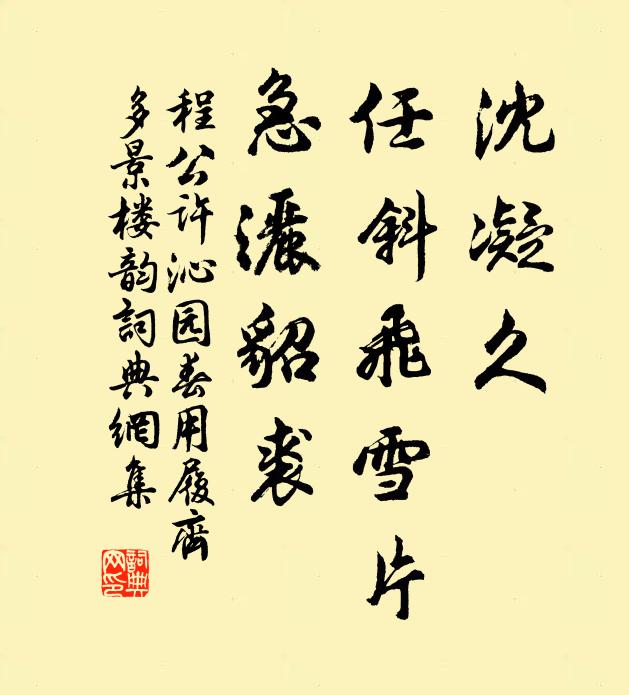 沈凝久
任斜飛雪片
急灑貂裘
程公许沁园春用履齋
多景楼韵詞典網集
詞典网印